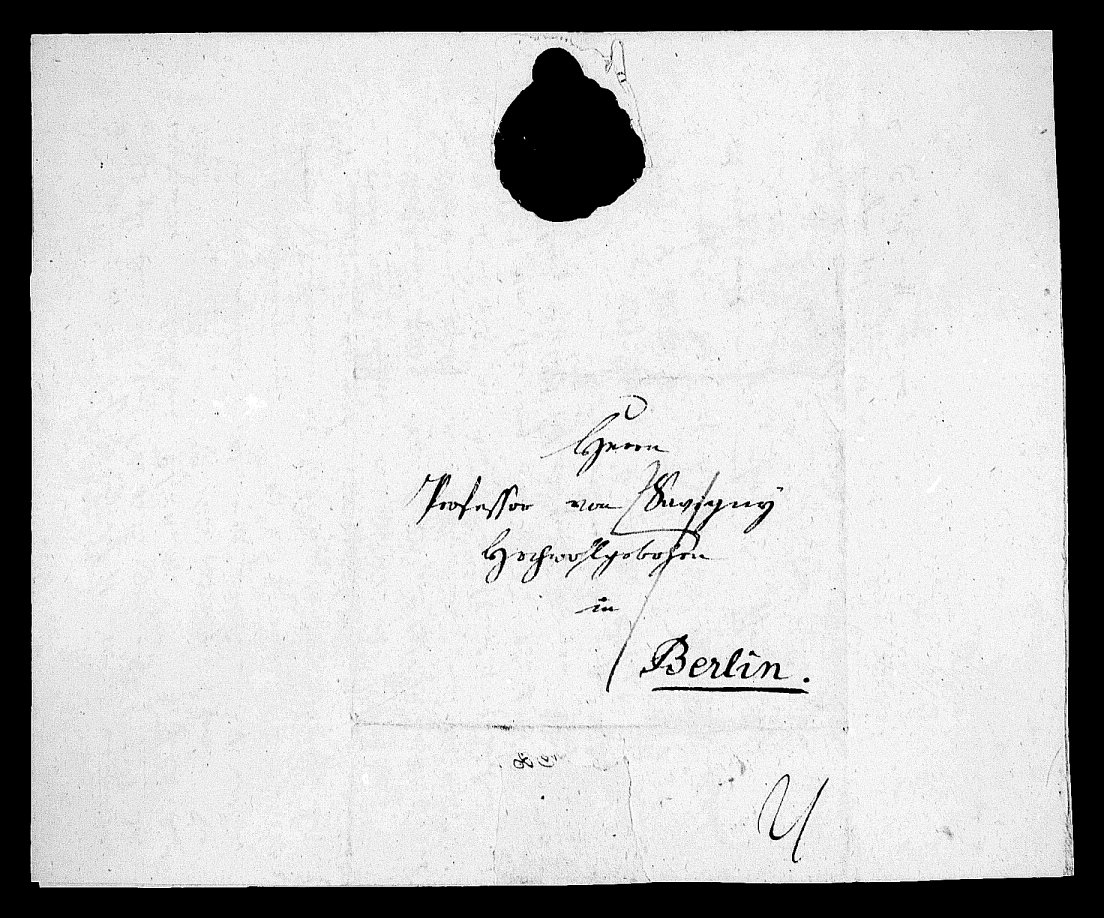 Herrn
Professor von Savigny
Hochwohlgebohren
in
Berlin.